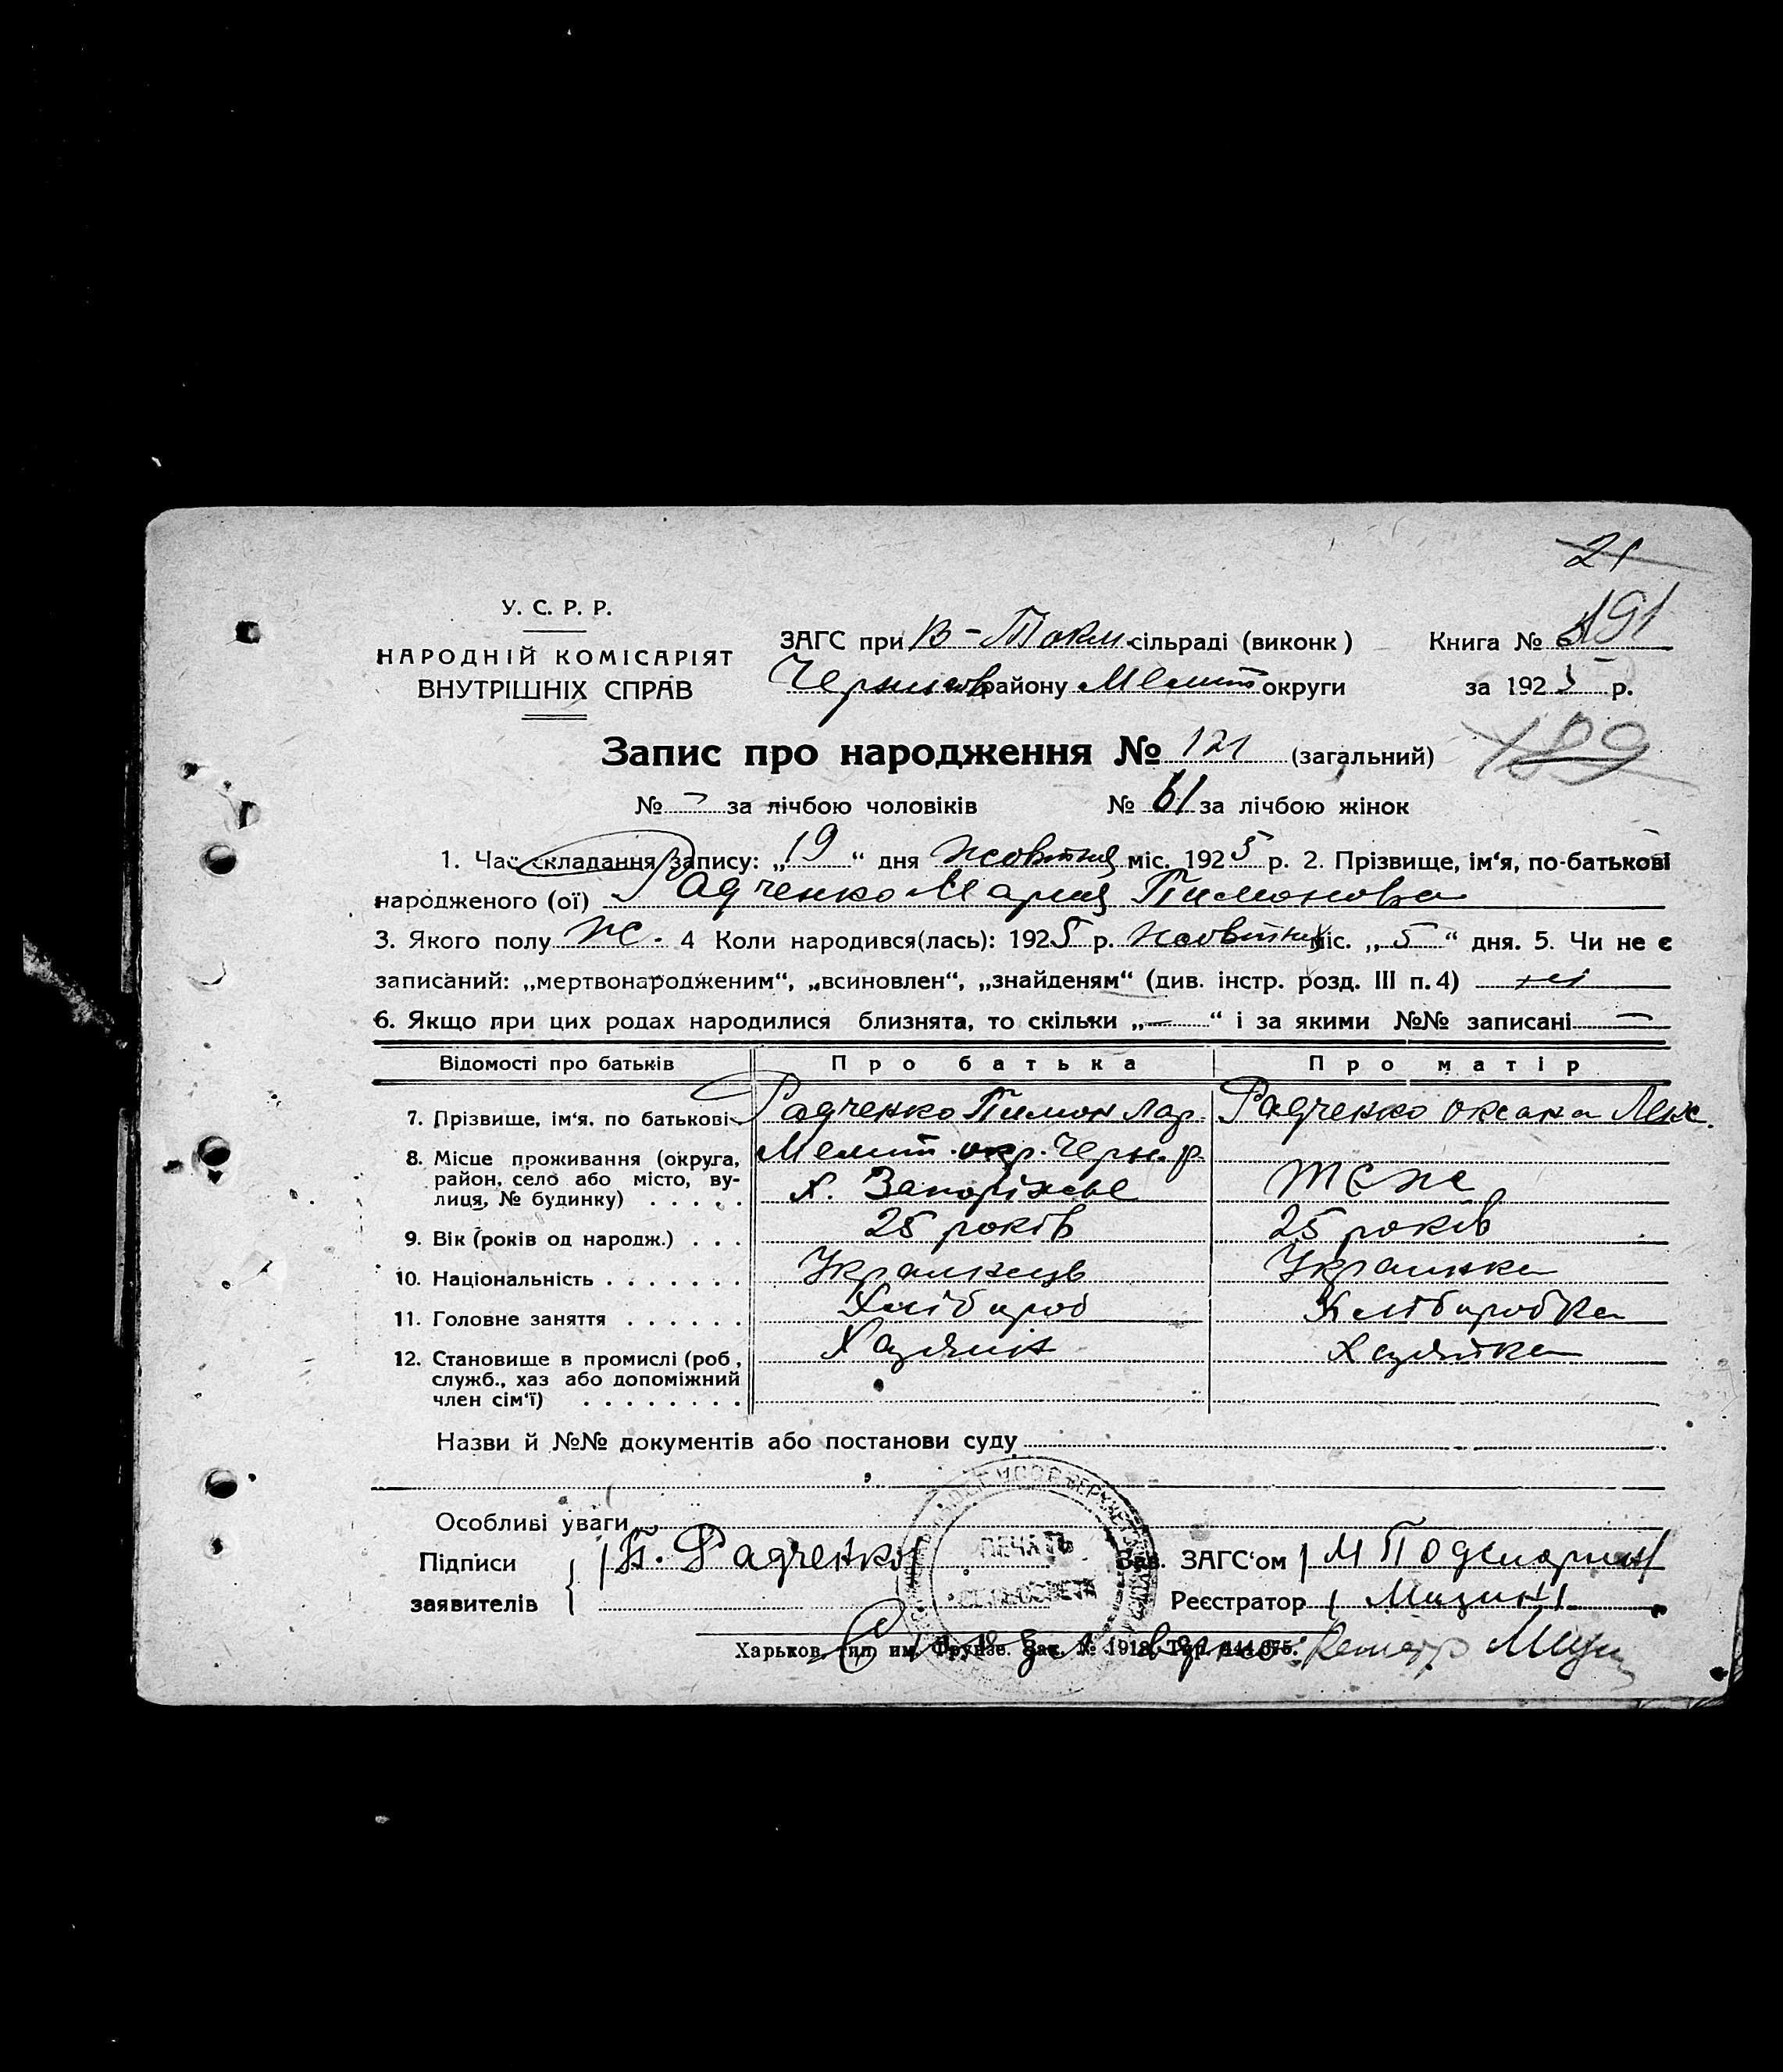 21
У. С. Р. Р.
НАРОДНІЙ КОМІСАРІЯТ
ВНУТРІШНІХ СПРАВ
ЗАГС при В-Токм. сільраді (виконк)
Книга № 191
Чернигов району Мелит округи
за 1925 р.
Запис про народження № 121 (загальний)
189
№ - за лічбою чоловіків № 61 за лічбою жінок
1. Час складання запису: „19“ дня жовтня міс. 1925 р. 2. Прізвище, ім‘я, по-батькові
народженого (ої) Радченко Мария Пимонова
3. Якого полу ж. 4 Коли народився(лась): 1925 р. жовтня міс. „5“ дня. 5. Чи не є
записаний: „мертвонародженим“, „всиновлен“, „знайденям“ (див. інстр. розд. III п. 4) ні
6. Якщо при цих родах народилися близнята, то скільки „—“ і за якими №№ записані —
Відомості про батьків Про батька Про матір
7. Прізвище, ім'я, по батькові Радченко Пимон Лар. Радченко Оксана
8. Місце проживання (округа, Мелит. окр. Черн. р.
район, село або місто, ву-
лиця, № будинку) . . . . . Х. Запоріжьє теж
9. Вік (років од народж.) . . . 25 років 25 років
10. Національність . . . . . . . Украинець Украинка
11. Головне заняття . . . . . . Хлібороб Хлібороbка
12. Становище в промислі (роб, Хазяин Хазяйка
служб., хаз або допоміжний
член сім‘ї) . . . . . . . .
Назви й №№ документів або постанови суду
Особливі уваги
Підписи П. Радченко
Зав. ЗАГС‘ом
заявителів
Реєстратор Мизин
ПЕЧАТЬ
СЕЛЬСОВЕТА
Харьков, тип. им. Фрунзе. Зак. № 1918. Тир. 444.675.